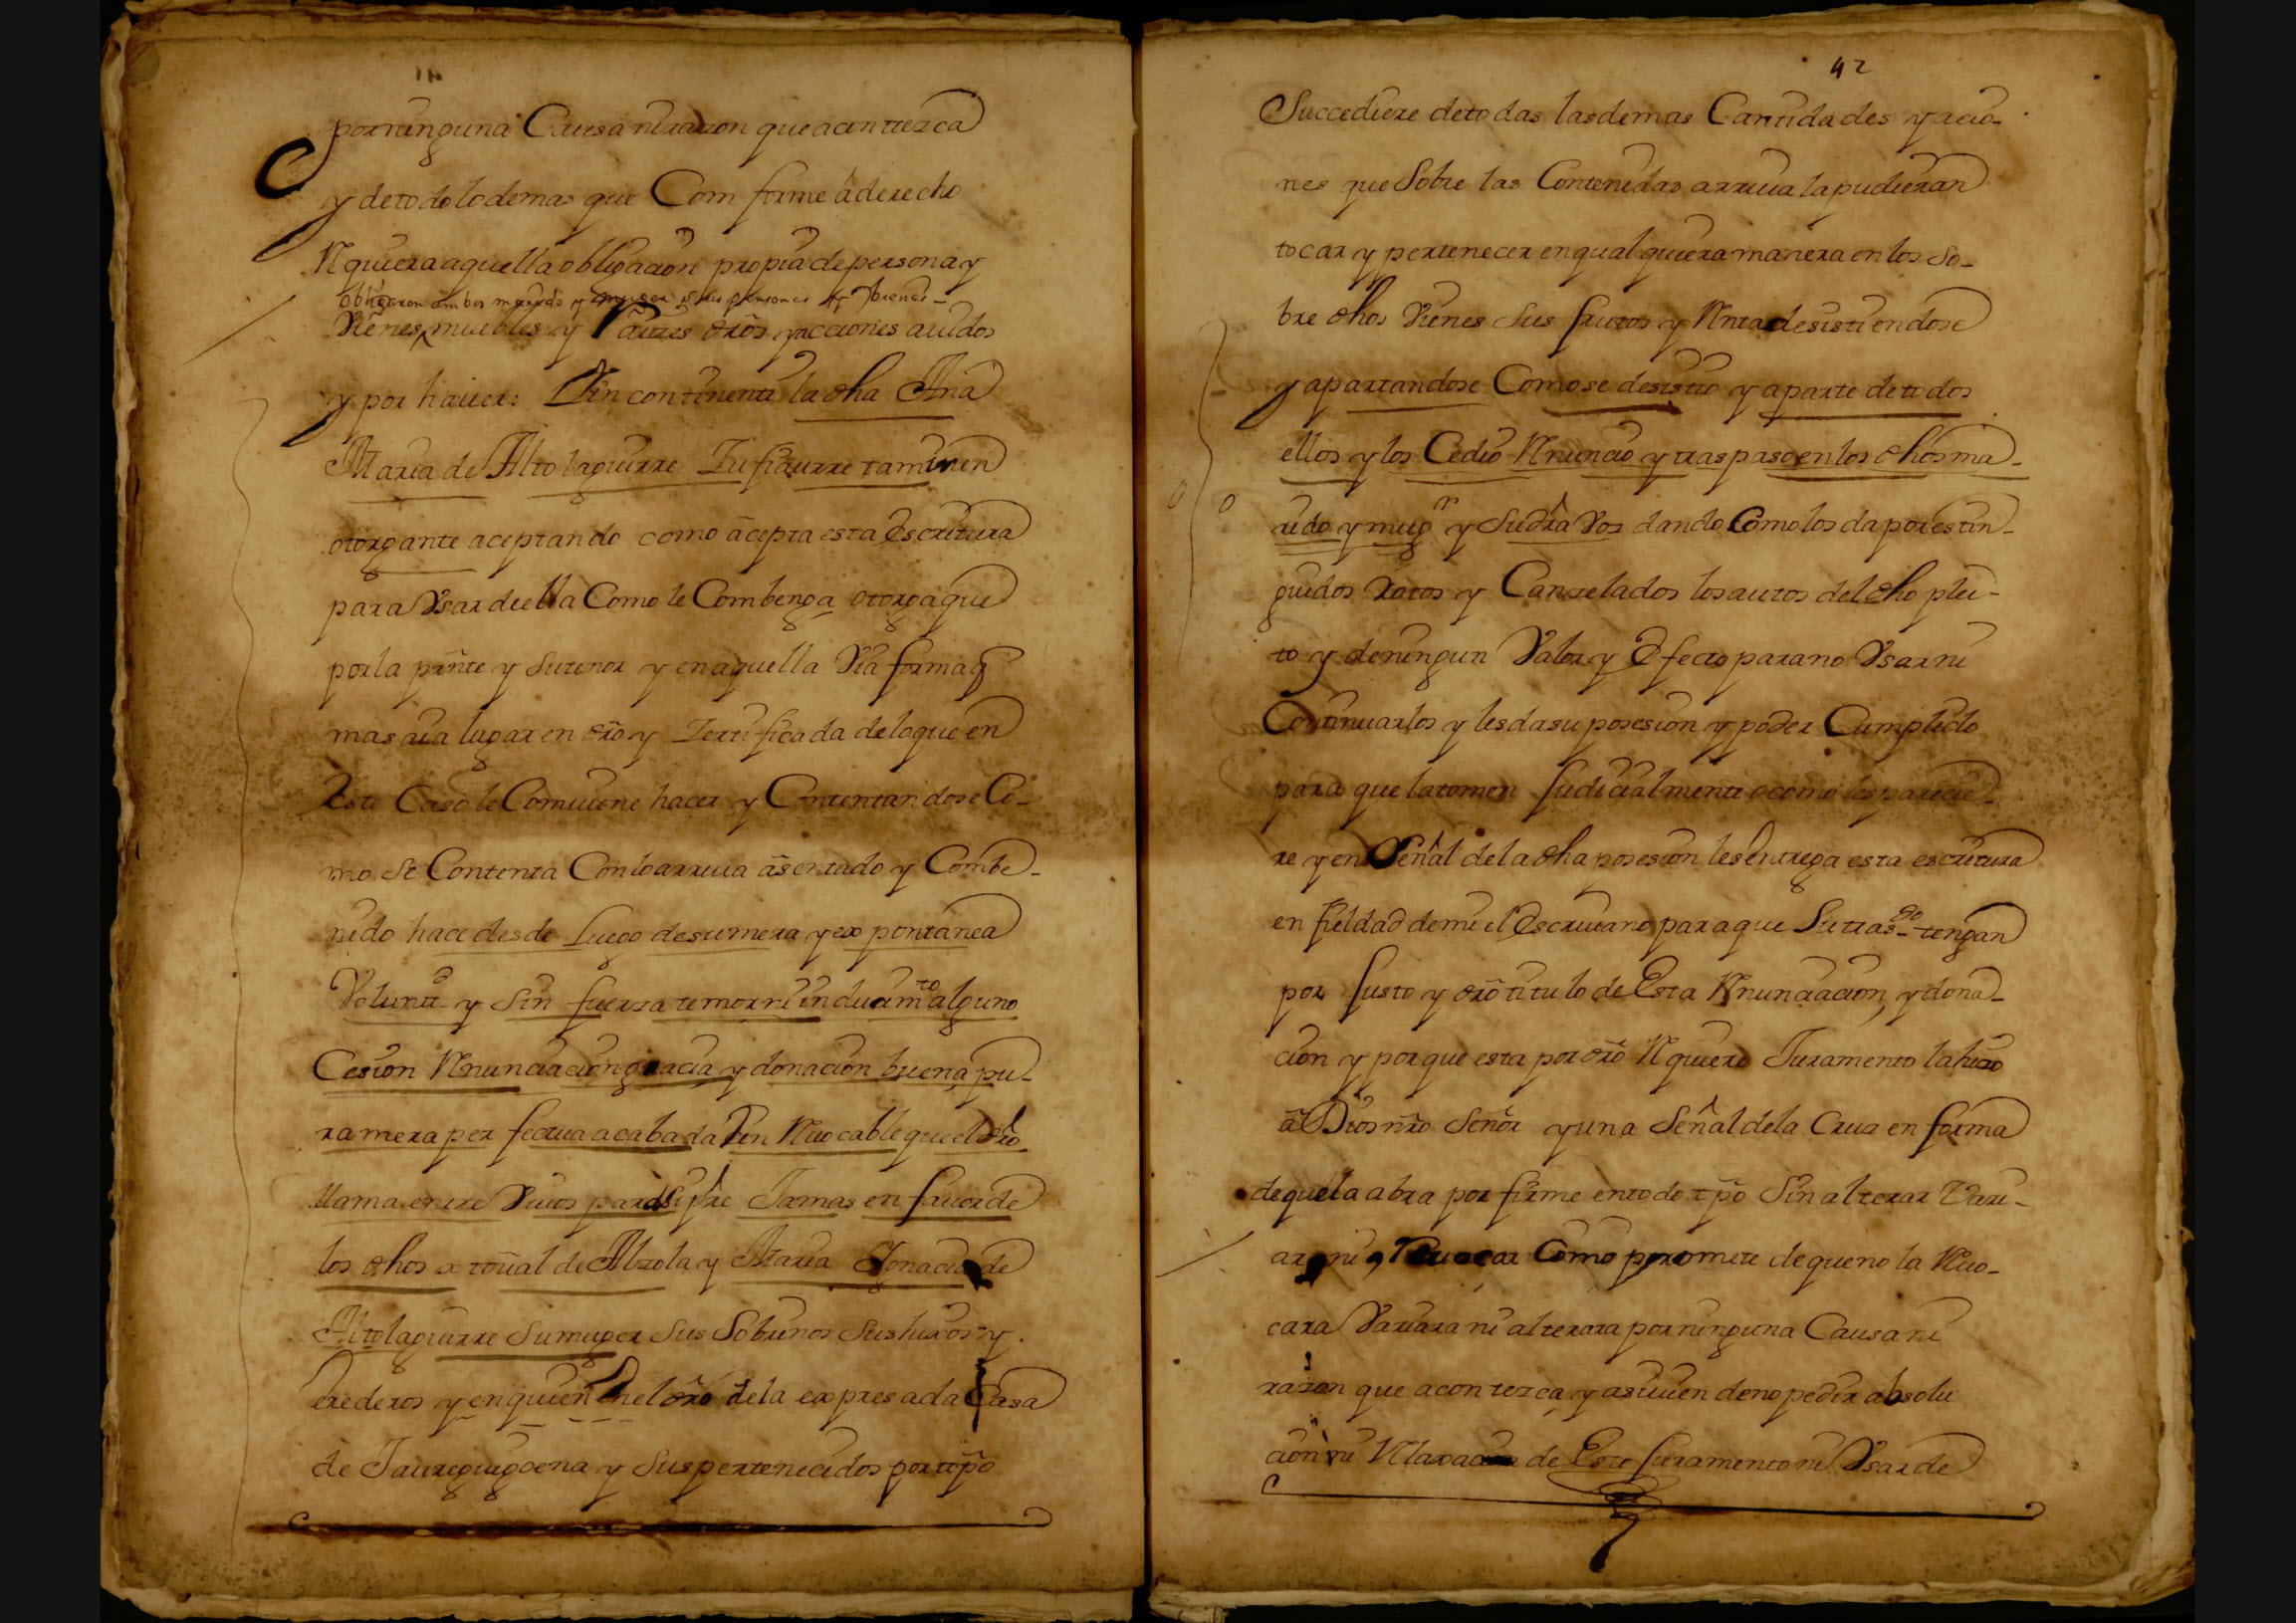 por ninguna Causa ni raçon que acontezca
y de todo lo demas que Comforme â derecho
Rquiera aquella obligacion propia de persona y
obligaron ambos marido y muger sus personas y bienes
Vienes muebles y Raizes dr̃os y acciones auidos
y por hauer: Yin continenti la dha Ana
Maria de Altolaguirre Lufiaurre tamuien
otorgante aceptando como açepta esta Escritura
para Vsar de ella Como le Combenga otorga que
por la prñte y su tenor y en aquella Via forma q̃
mas aia lugar en dr̃o y Zertificada de lo que en
Este Caso le Comuiene hacer y Contentandose Co-
mo se Contenta Con lo arriua asentado y Combe-
nido hace desde Luego de su mera y expontanea
Volunt.d y Sin fuerza temor ni inducim.to alguno
Cesion Rnunciacion gracia y donacion buena pu-
ra mera perfecta acabada E in Rbocable que el dr̃o
llama entre Viuos para Sipr̃e Jamas en fauor de
los dhos xptoũal de Alzola y Maria Ygnacia de
Altolaguirre Su muger Sus Sobrinos Sus hixos y
erederos y en quien En el dr̃o de la expresada Casa
de Jaureguigoena y Sus pertenecidos por tp̃o
42
Succediere de todas las demas Cantidades y accio-
nes que Sobre las Contenidas arriua la pudieran
tocar y pertenecer en qual quiera manera en los So-
bre dhos Vienes Sus frutos y Rnta desistiendose
y apartandose Como se desistio y aparte de todos
ellos y los Cedio Rnuncio y traspaso en los dhos ma-
rido y mug.r y Su dr̃a Voz dando Como los da por estin-
guidos Rotos y Canzelados los autos del dho plei-
to y de ningun Valor y Efecto para no Vsar ni
Continuarlos y les da su posesion y poder Cumplido
para que la tomen Judicialmente o como les parecie-
re y en Señal de la dha posesion les Entrega esta escritura
en fieldad de mi el Escriuano para que Su tras.do tengan
por Justo y dr̃o titulo de Esta Rnunciacion, y dona-
cion y porque esta por dr̃o Rquiere Juramento la hizo
â Dios nr̃o Señor y una Señal de la Cruz en forma
de que la abra por firme en todo tp̃o Sin alterar Vari-
ar ni Reuocar Como promete de que no la Rvo-
cara Variara ni alterara por ninguna Causa ni
razon que acontezca, y asiuien de no pedir absolu
cion ni Rlaxacion de Este Juramento ni Vsar de